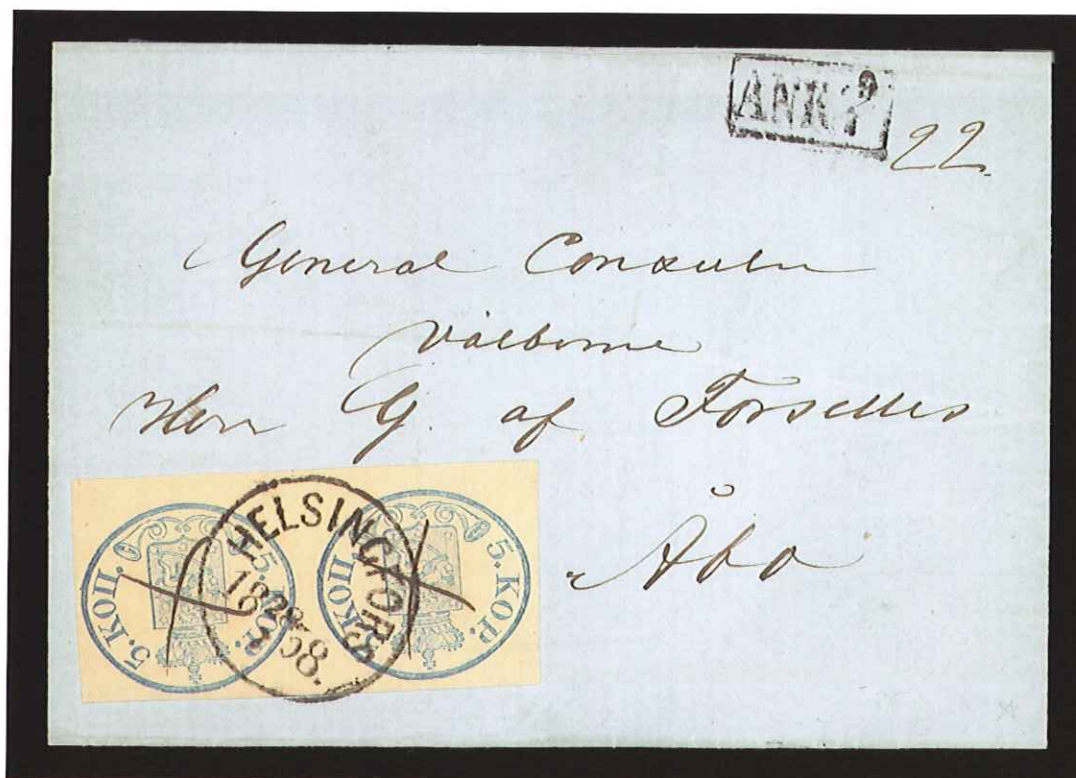 ANK
22.
General Consuln
Välborne
Herr G. af Forselles
Åbo
5. КОП. 5. KOP.
5. КОП. 5. KOP.
HELSINGFORS
1858.